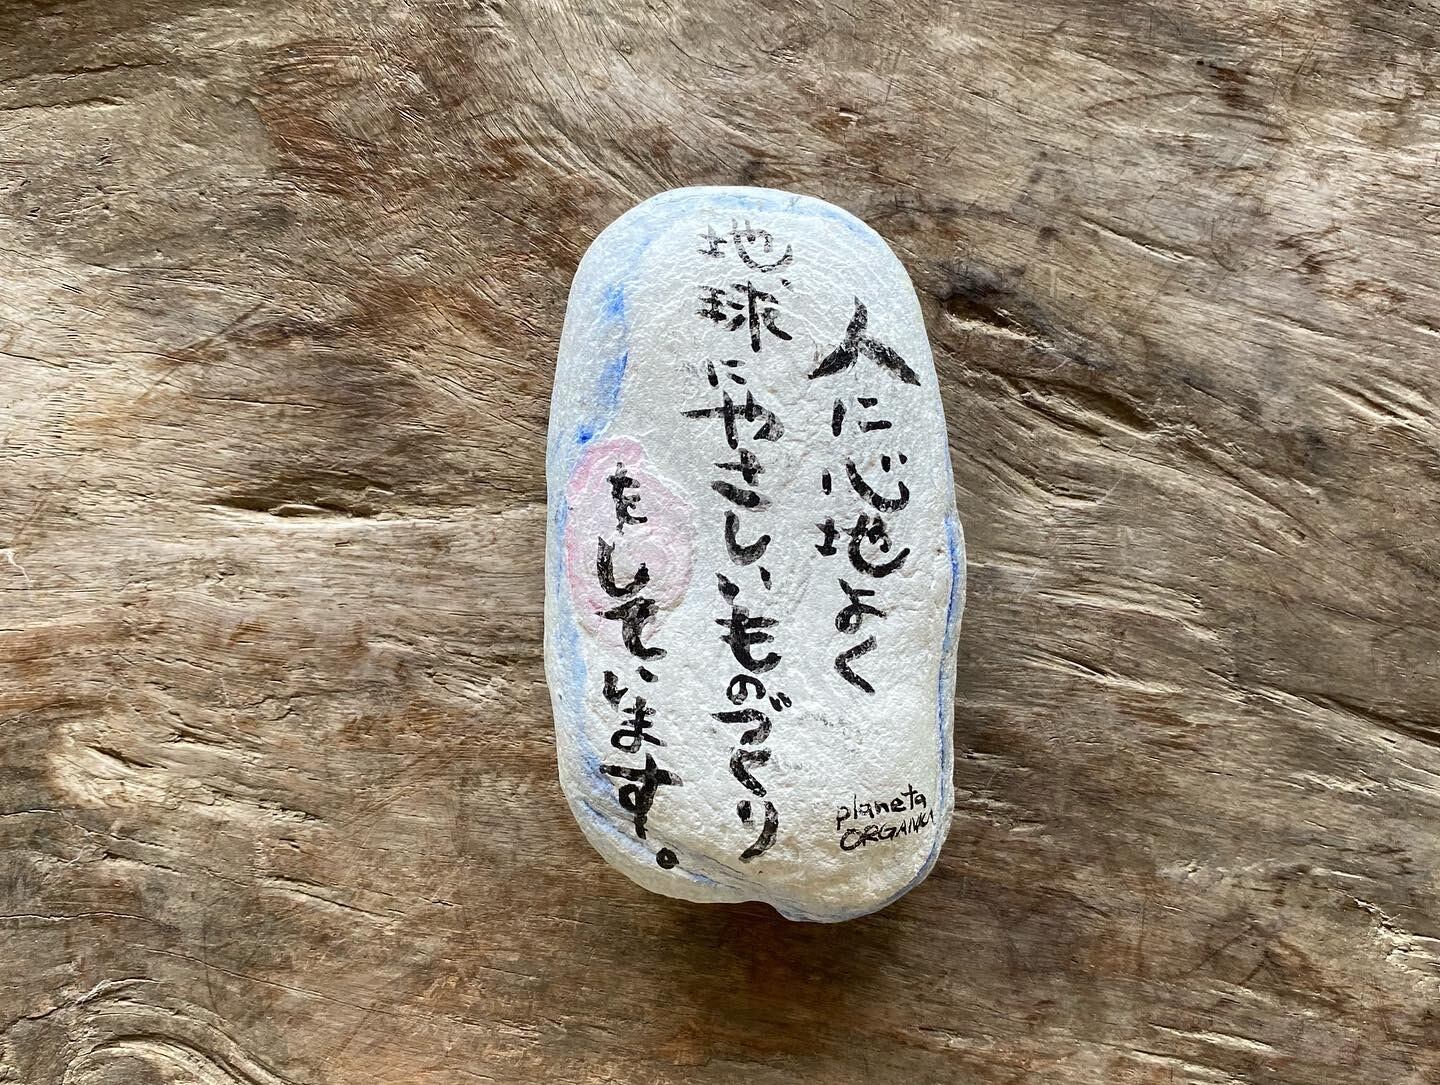 人に心地よく
地球にやさしいものづくり
をしています。
planeta
ORGANICA